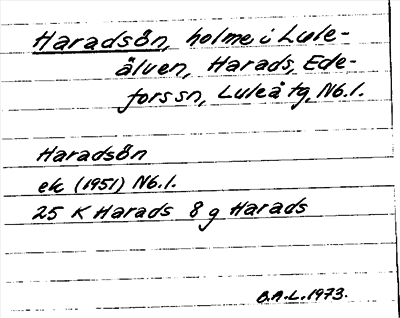 Haradsön, holme i Lule-
älven, Harads, Ede-
fors sn, Luleå tg, Nb.l.
Haradsön
ek (1951) Nb.l.
25 K Harads 8 g Harads
B.A.L. 1973.